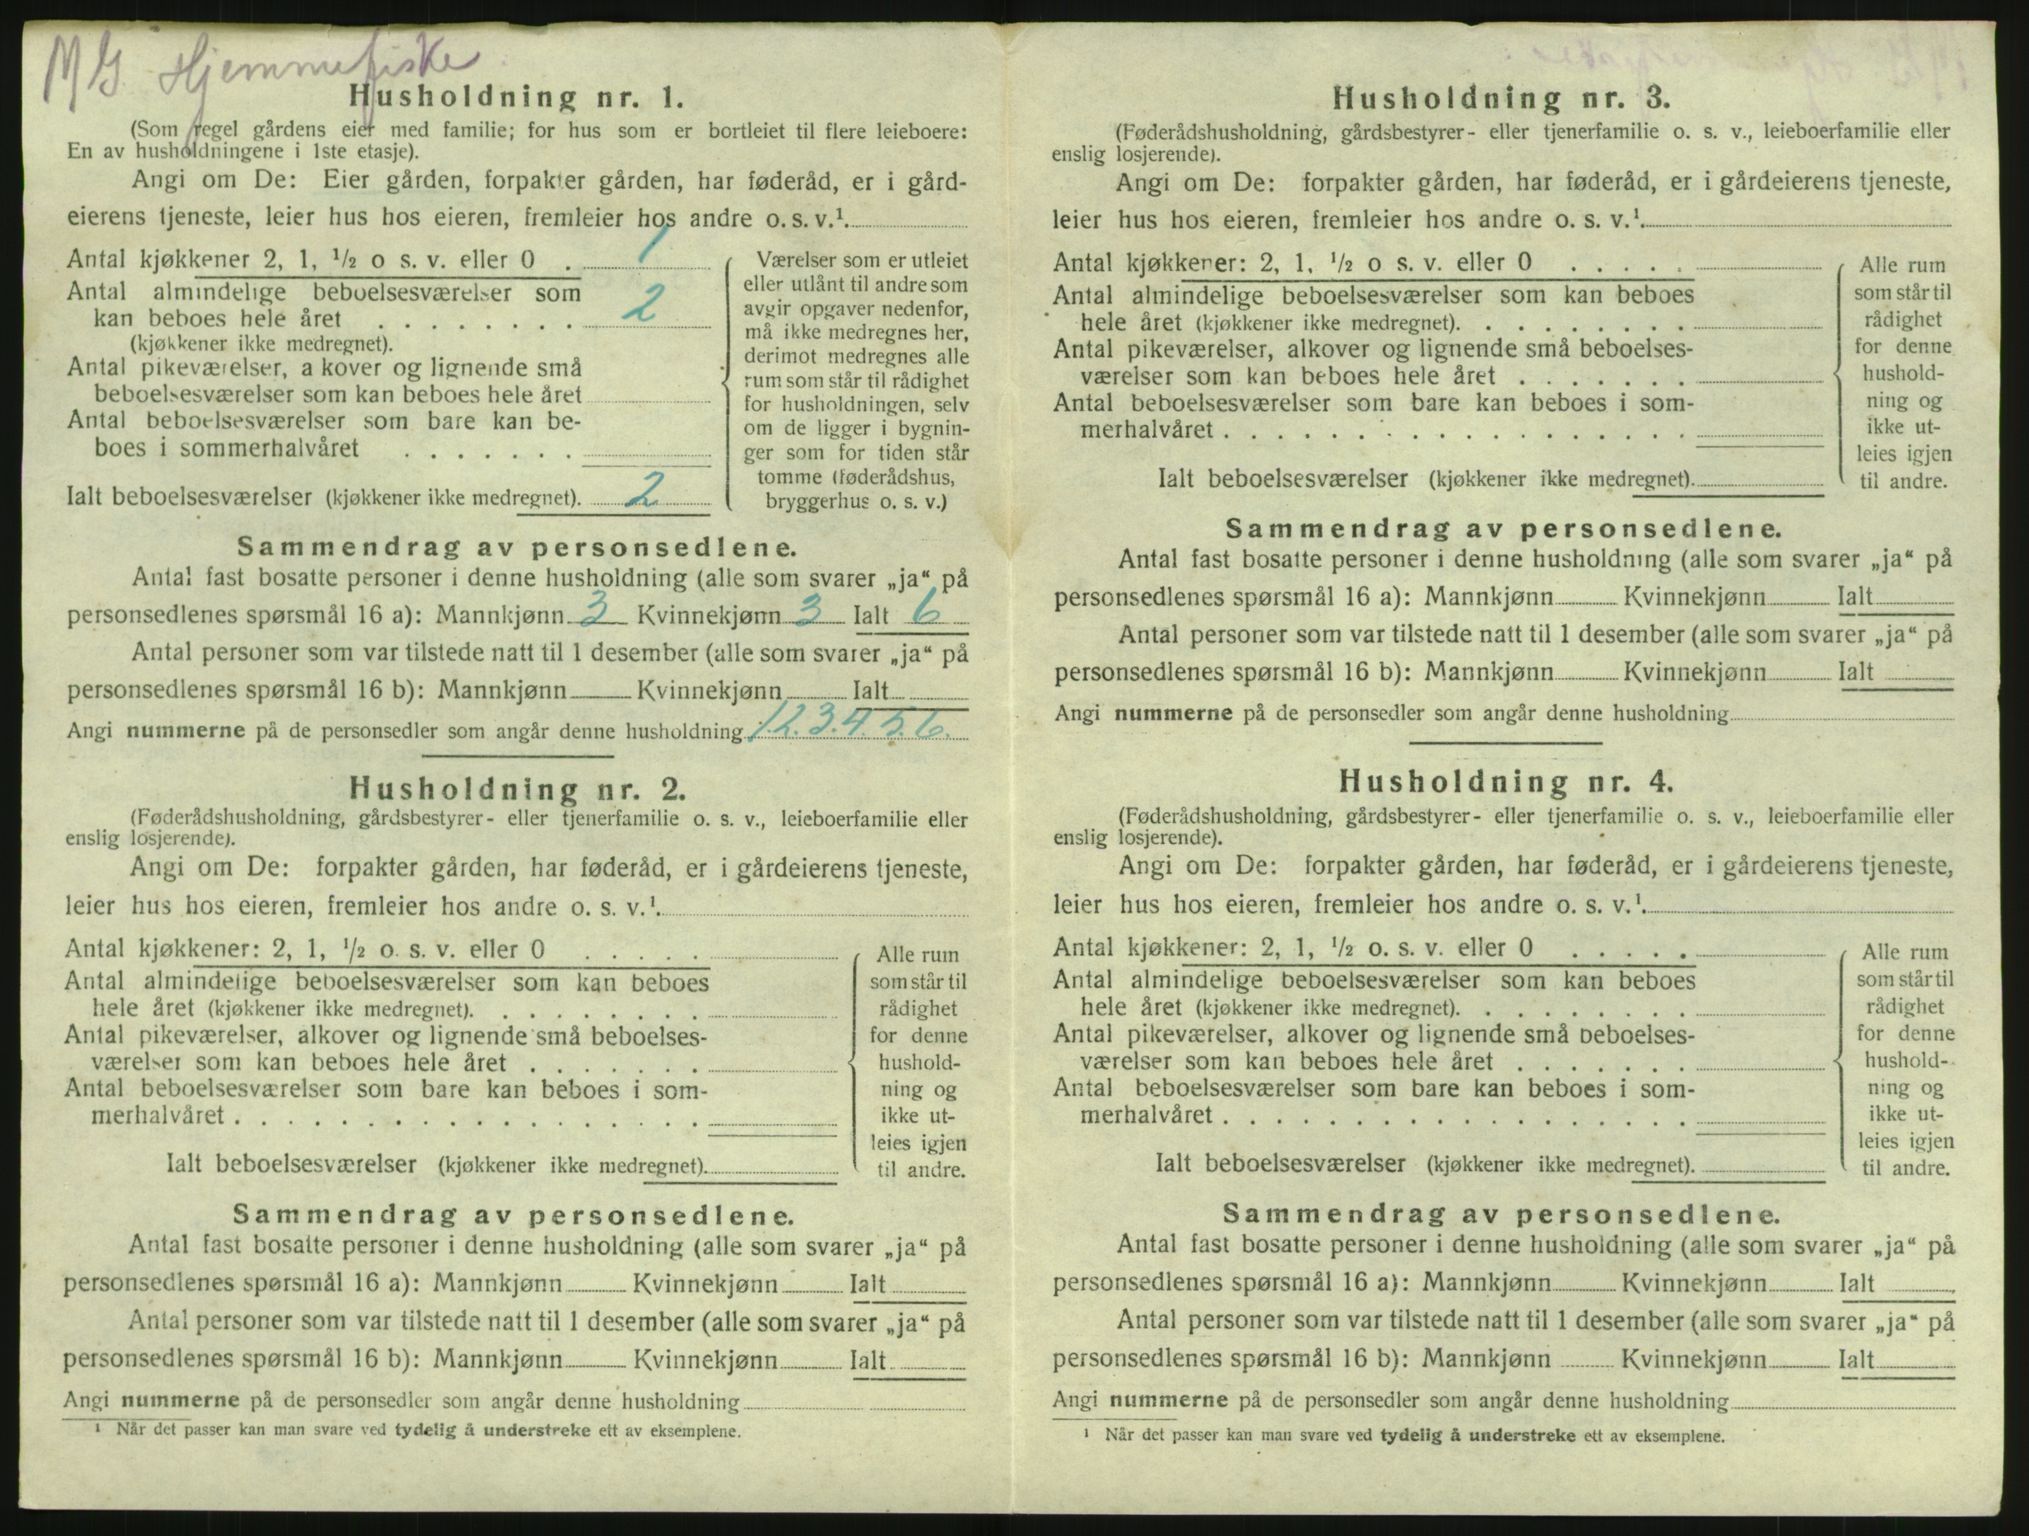 MG Hjemmefiske
Husholdning nr. 1.
(Som regel gårdens eier med familie; for hus som er bortleiet til flere leieboere:
En av husholdningene i 1ste etasje).
Angi om De: Eier gården, forpakter gården, har føderåd, er i gård-
eierens tjeneste, leier hus hos eieren, fremleier hos andre o. s. v.¹
Antal kjøkkener 2, 1, ½ o s. v. eller 0 . 1
Antal almindelige beboelsesværelser som
kan beboes hele året . . . . . . . . 2
(kjøkkener ikke medregnet).
Antal pikeværelser, a kover og lignende små
beboelsesværelser som kan beboes hele året
Antal beboelsesværelser som bare kan be-
boes i sommerhalvåret . . . . . . .
Ialt beboelsesværelser (kjøkkener ikke medregnet). 2
Værelser som er utleiet
eller utlånt til andre som
avgir opgaver nedenfor,
må ikke medregnes her,
derimot medregnes alle
rum som står til rådighet
for husholdningen, selv
om de ligger i bygnin-
ger som for tiden står
tomme (føderådshus,
bryggerhus o. s. v.)
Sammendrag av personsedlene.
Antal fast bosatte personer i denne husholdning (alle som svarer „ja“ på
personsedlenes spørsmål 16 a): Mannkjønn 3 Kvinnekjønn 3 Ialt 6
Antal personer som var tilstede natt til 1 desember (alle som svarer „ja“ på
personsedlenes spørsmål 16 b): Mannkjønn Kvinnekjønn Ialt
Angi nummerne på de personsedler som angår denne husholdning 1.2.3.4.5.6.
Husholdning nr. 2.
(Føderådshusholdning, gårdsbestyrer- eller tjenerfamilie o. s. v., leieboerfamilie eller
enslig losjerende).
Angi om De: forpakter gården, har føderåd, er i gårdeierens tjeneste,
leier hus hos eieren, fremleier hos andre o. s. v.¹
Antal kjøkkener: 2, 1, ½ o. s. v. eller 0 . . . . .
Antal almindelige beboelsesværelser som kan beboes
hele året (kjøkkener ikke medregnet). . . . . . . . .
Antal pikeværelser, alkover og lignende små beboelses-
værelser som kan beboes hele året . . . . . . .
Antal beboelsesværelser som bare kan beboes i som-
merhalvåret . . . . . . . . . . . . . . . . . .
Ialt beboelsesværelser (kjøkkener ikke medregnet).
Alle rum
som står til
rådighet
for denne
hushold-
ning og
ikke ut-
leies igjen
til andre.
Sammendrag av personsedlene.
Antal fast bosatte personer i denne husholdning (alle som svarer „ja“ på
personsedlenes spørsmål 16 a): Mannkjønn Kvinnekjønn Ialt
Antal personer som var tilstede natt til 1 desember (alle som svarer „ja“ på
personsedlenes spørsmål 16 b): Mannkjønn Kvinnekjønn Ialt
Angi nummerne på de personsedler som angår denne husholdning
¹ Når det passer kan man svare ved tydelig å understreke ett av eksemplene.
Husholdning nr. 3.
(Føderådshusholdning, gårdsbestyrer- eller tjenerfamilie o. s. v., leieboerfamilie eller
enslig losjerende).
Angi om De: forpakter gården, har føderåd, er i gårdeierens tjeneste,
leier hus hos eieren, fremleier hos andre o. s. v.¹
Antal kjøkkener: 2, 1, ½ o s. v. eller 0 . . . . .
Antal almindelige beboelsesværelser som kan beboes
hele året (kjøkkener ikke medregnet). . . . . . . . .
Antal pikeværelser, alkover og lignende små beboelses-
værelser som kan beboes hele året . . . . . . .
Antal beboelsesværelser som bare kan beboes i som-
merhalvåret . . . . . . . . . . . . . . . . . .
Ialt beboelsesværelser (kjøkkener ikke medregnet).
Alle rum
som står til
rådighet
for denne
hushold-
ning og
ikke ut-
leies igjen
til andre.
Sammendrag av personsedlene.
Antal fast bosatte personer i denne husholdning (alle som svarer „ja“ på
personsedlenes spørsmål 16 a): Mannkjønn Kvinnekjønn Ialt
Antal personer som var tilstede natt til 1 desember (alle som svarer „ja“ på
personsedlenes spørsmål 16 b): Mannkjønn Kvinnekjønn Ialt
Angi nummerne på de personsedler som angår denne husholdning
Husholdning nr. 4.
(Føderådshusholdning, gårdsbestyrer- eller tjenerfamilie o. s. v., leieboerfamilie eller
enslig losjerende).
Angi om De: forpakter gården, har føderåd, er i gårdeierens tjeneste,
leier hus hos eieren, fremleier hos andre o. s. v.¹
Antal kjøkkener: 2, 1, ½ o. s. v. eller 0 . . . . .
Antal almindelige beboelsesværelser som kan beboes
hele året (kjøkkener ikke medregnet). . . . . . . . .
Antal pikeværelser, alkover og lignende små beboelses-
værelser som kan beboes hele året . . . . . . .
Antal beboelsesværelser som bare kan beboes i som-
merhalvåret . . . . . . . . . . . . . . . . . .
Ialt beboelsesværelser (kjøkkener ikke medregnet).
Alle rum
som står til
rådighet
for denne
hushold-
ning og
ikke ut-
leies igjen
til andre.
Sammendrag av personsedlene.
Antal fast bosatte personer i denne husholdning (alle som svarer „ja“ på
personsedlenes spørsmål 16 a): Mannkjønn Kvinnekjønn Ialt
Antal personer som var tilstede natt til 1 desember (alle som svarer „ja“ på
personsedlenes spørsmål 16 b): Mannkjønn Kvinnekjønn Ialt
Angi nummerne på de personsedler som angår denne husholdning
¹ Når det passer kan man svare ved tydelig å understreke ett av eksemplene.